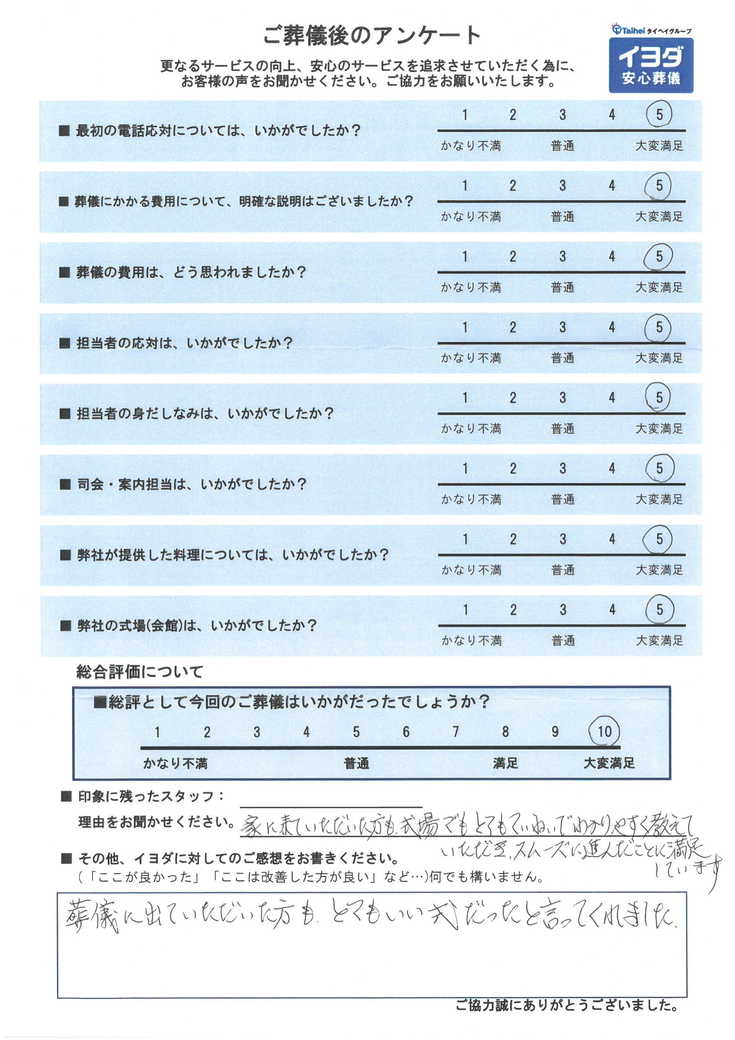 ご葬儀後のアンケート
Taihei タイヘイグループ
イヨダ
安心葬儀
更なるサービスの向上、安心のサービスを追求させていただく為に、
お客様の声をお聞かせください。ご協力をお願いいたします。
■ 最初の電話応対については、いかがでしたか？
1 2 3 4 5
かなり不満 普通 大変満足
■ 葬儀にかかる費用について、明確な説明はございましたか？
1 2 3 4 5
かなり不満 普通 大変満足
■ 葬儀の費用は、どう思われましたか？
1 2 3 4 5
かなり不満 普通 大変満足
■ 担当者の応対は、いかがでしたか？
1 2 3 4 5
かなり不満 普通 大変満足
■ 担当者の身だしなみは、いかがでしたか？
1 2 3 4 5
かなり不満 普通 大変満足
■ 司会・案内担当は、いかがでしたか？
1 2 3 4 5
かなり不満 普通 大変満足
■ 弊社が提供した料理については、いかがでしたか？
1 2 3 4 5
かなり不満 普通 大変満足
■ 弊社の式場(会館)は、いかがでしたか？
1 2 3 4 5
かなり不満 普通 大変満足
総合評価について
■総評として今回のご葬儀はいかがだったでしょうか？
1 2 3 4 5 6 7 8 9 10
かなり不満 普通 満足 大変満足
■ 印象に残ったスタッフ：
理由をお聞かせください。家に来ていただいた方も、式場でもとてもていねいでわかりやすく教えて
いただき、スムーズに進んだことに満足
しています
■ その他、イヨダに対してのご感想をお書きください。
（「ここが良かった」「ここは改善した方が良い」など…)何でも構いません。
葬儀に出ていただいた方も、とてもいい式だったと言ってくれました。
ご協力誠にありがとうございました。